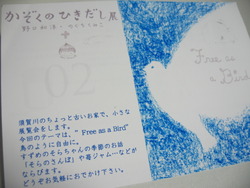 かぞくのひきだし展
Free as
a
Bird
須賀川のちょっと古いお家で、小さな
展覧会をします。
今回のテーマは、" Free as a Bird"
鳥のように自由に。
すずめのそらちゃんの季節のお話
「そらのさんぽ」や苺ジャム…などが
ならびます。
どうぞお気軽におでかけ下さい。